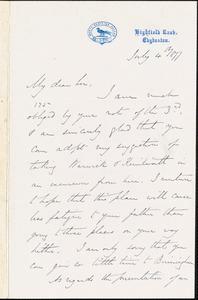 Highfield Road,
Edgbaston.
July 4th /77
My dear Sir,
I am much
obliged by your note of the 3rd.
I am sincerely glad that you
can adopt my suggestion of
taking Warwick & Kenilworth in
an excursion from here. I venture
to hope that this plan will cause
less fatigue to your father than
going to those places on your way
hither. I am only sorry that you
can give so little time to Birmingham
As regards the presentation of an